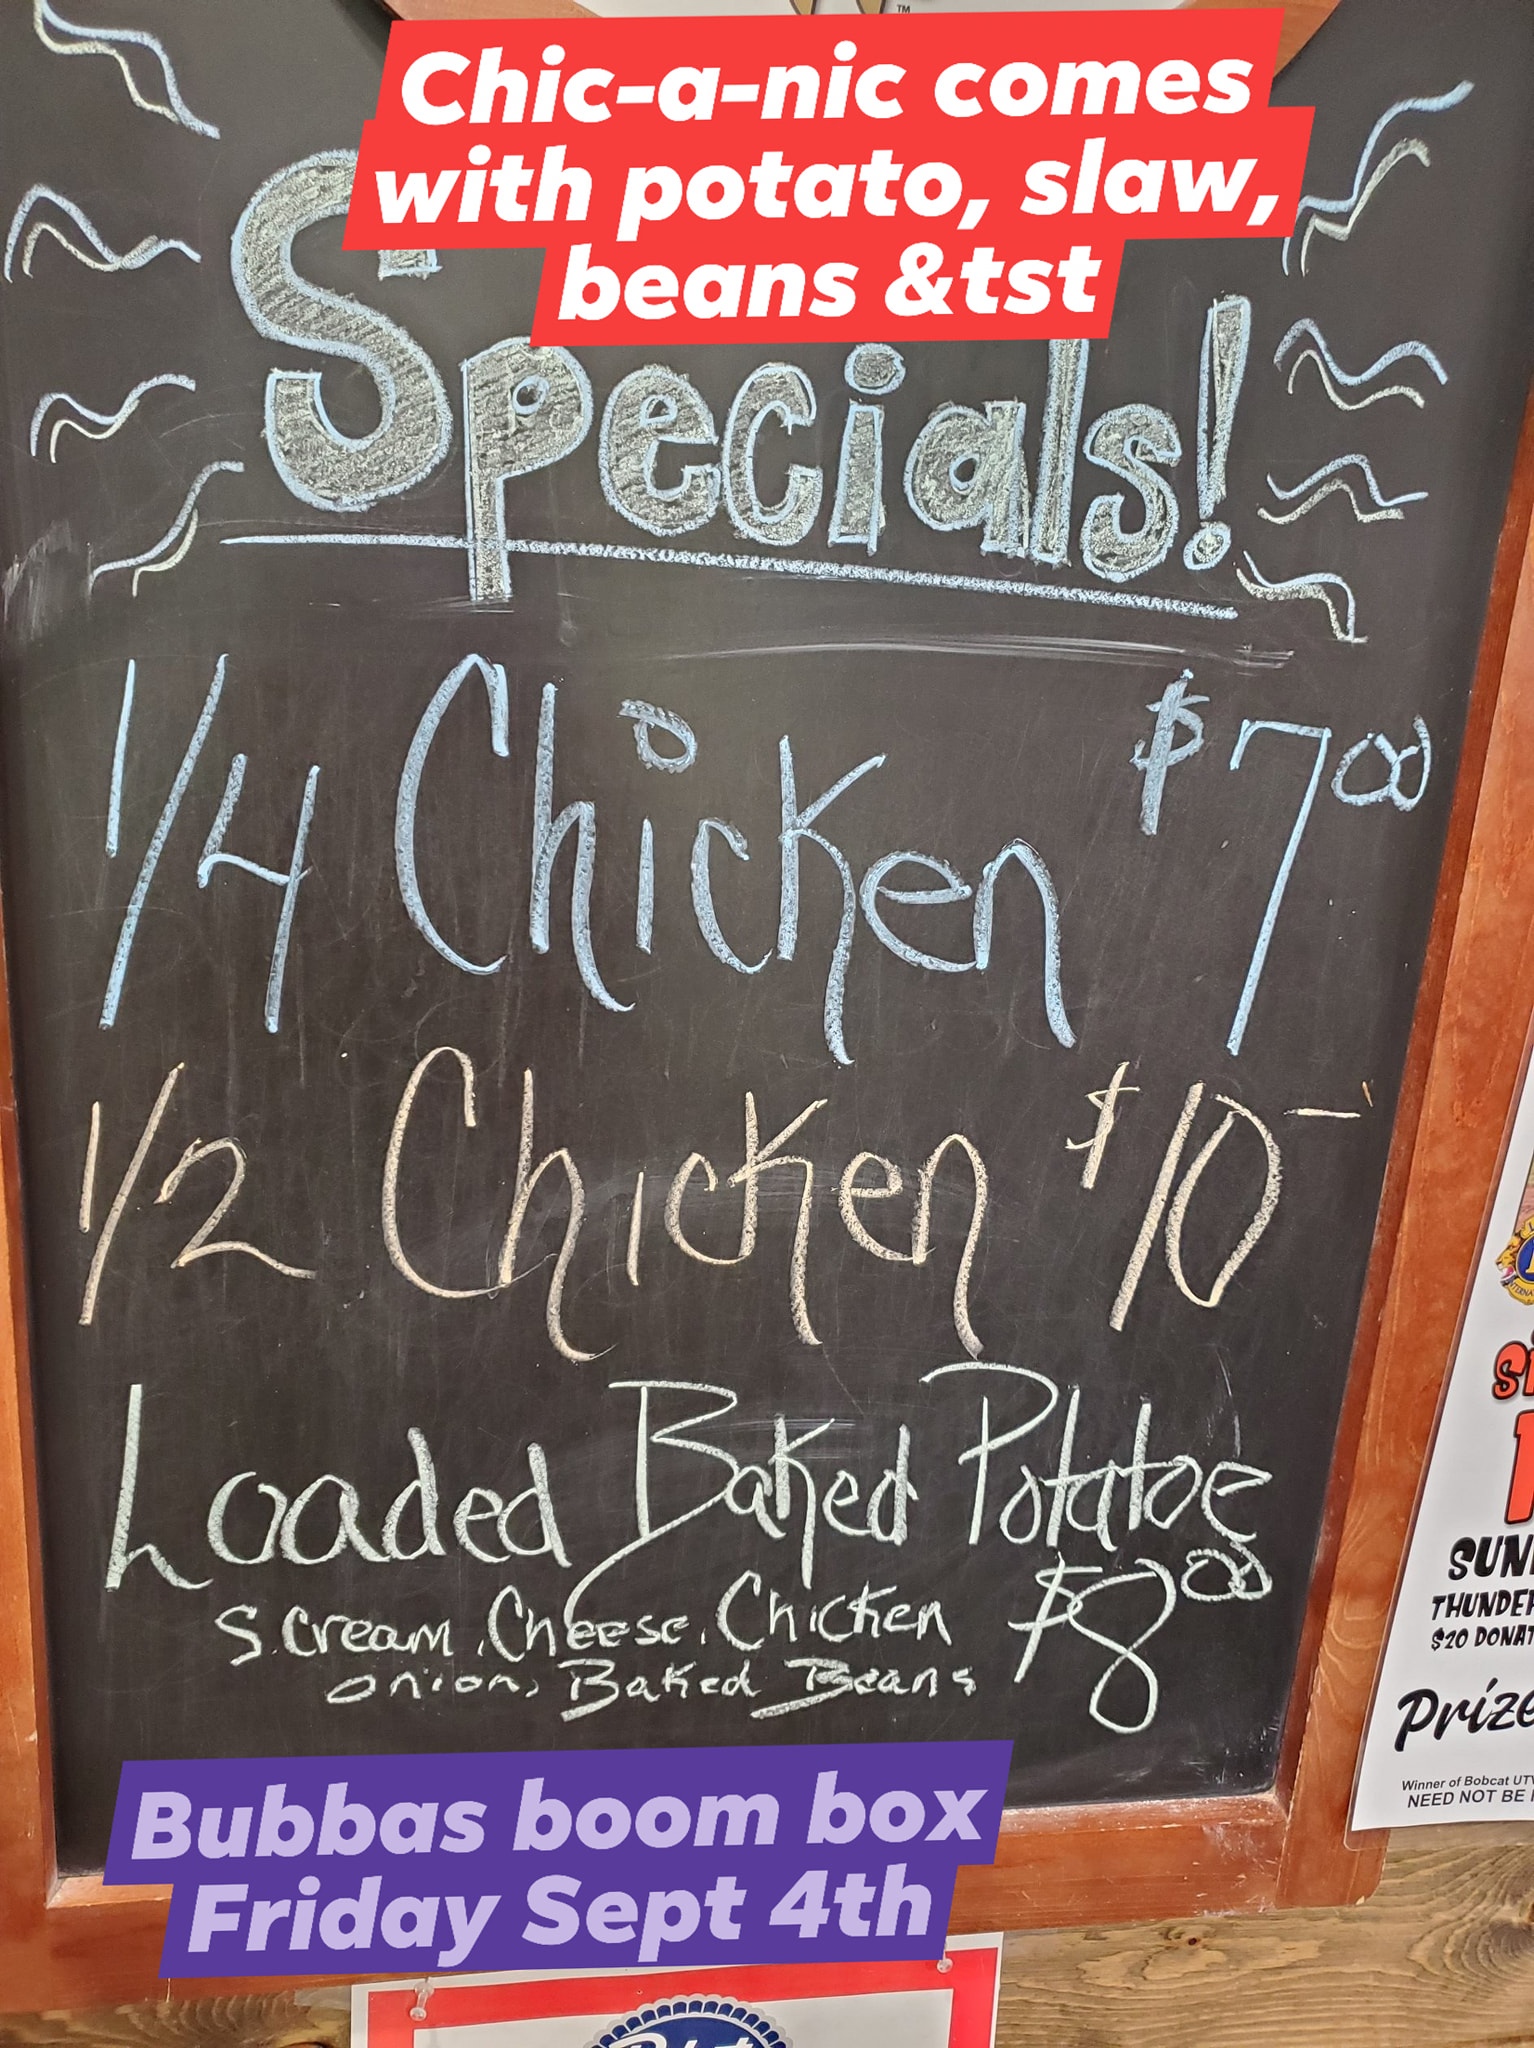 TM
Chic-a-nic comes
with potato, slaw,
beans &tst
Specials!
1/4 Chicken $7.00
1/2 Chicken $10-
Loaded Baked Potatoe
S. Cream, Cheese, Chicken $8.00
onion, Baked Beans
Bubbas boom box
Friday Sept 4th
SUN
THUNDER
$20 DONAT
Prize
Winner of Bobcat UTV
NEED NOT BE